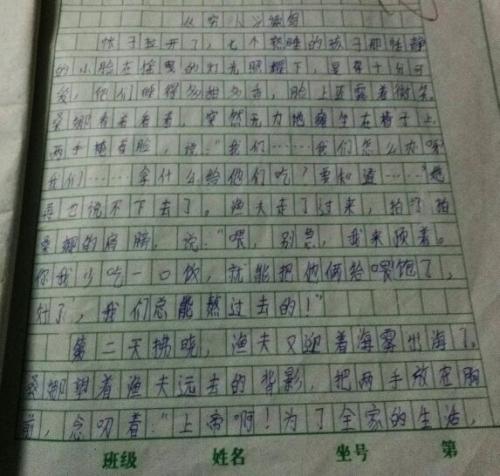 《穷人》续写
帐子拉开了,七个熟睡的孩子那恬静
的小脸在桔黄的灯光照耀下,显得十分可
爱,他们睡得多甜多香,脸上还露着微笑。
桑娜看着看着,突然无力地瘫坐在椅子上,
两手捂着脸,说:"我们……我们怎么办呀?
我们……拿什么给他们吃?要知道……"她
再也说不下去了。渔夫走了过来,拍了拍
桑娜的肩膀,说:"喂,别急,我来顶着。
你我少吃一口饭,就能把他俩给喂饱了,
好了,我们总能熬过去的!"
第二天拂晓,渔夫又迎着海雾出海了。
桑娜望着渔夫远去的背影,把两手放在胸
前,念叨着:"上帝啊!为了全家的生活,
班级 姓名 坐号 第